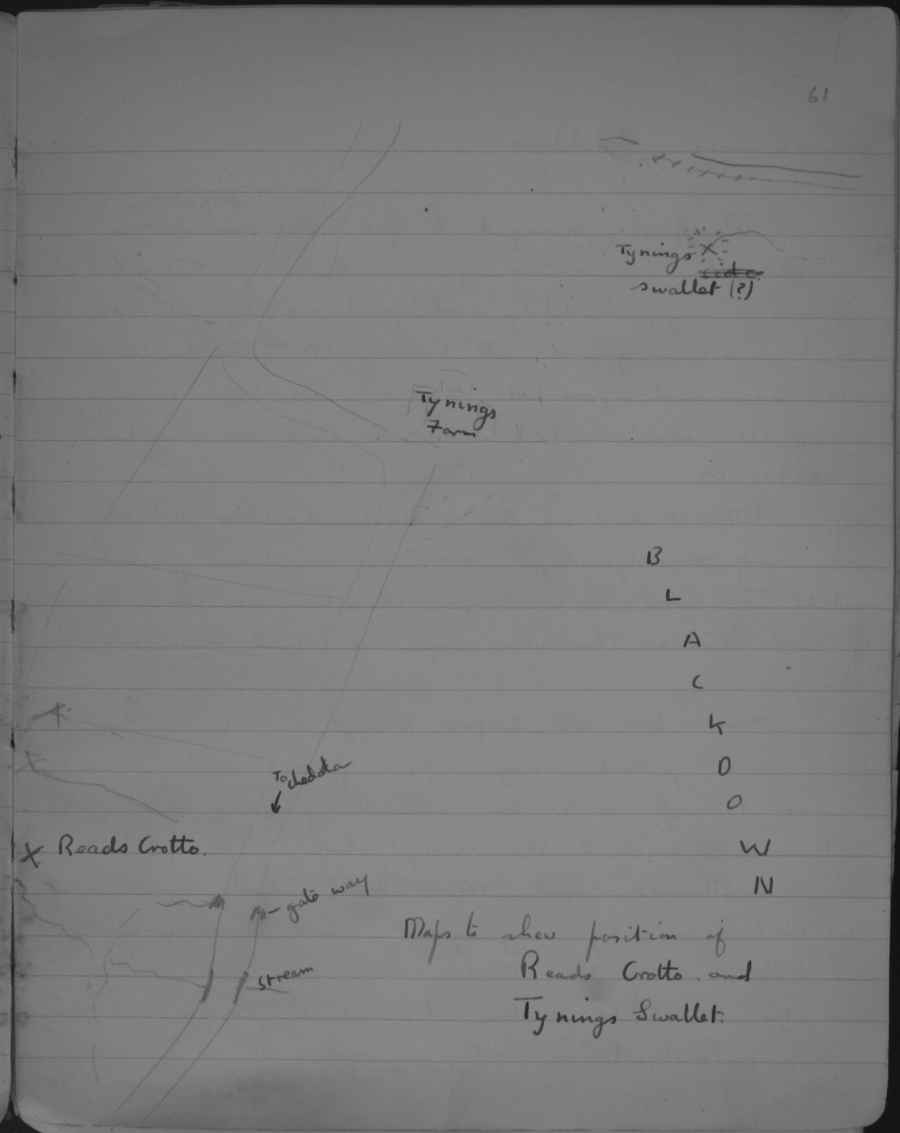 61
Tynings
swallet (?)
Tynings
Farm
B
L
A
C
K
D
O
W
N
To Cheddar
X Reads Grotto.
gate way
stream
Maps to show position of
Reads Grotto and
Tynings Swallet.